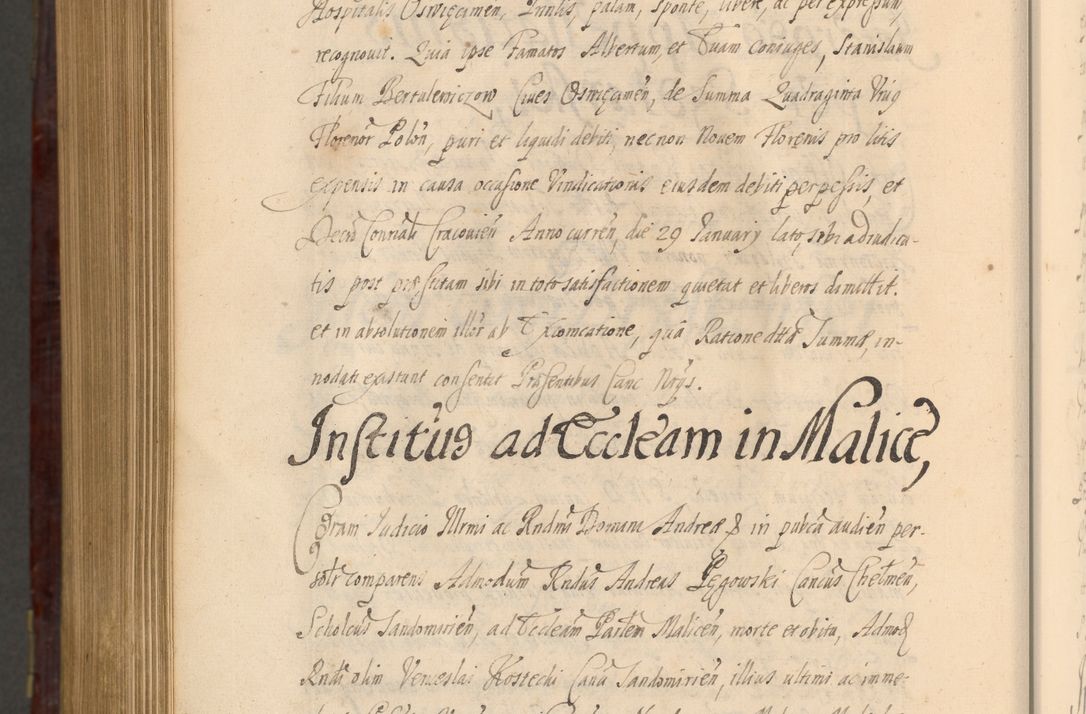 Hospitalis Oswięcimen, Irinlis, palam, sponte, libere, ac per expressum,
recognouit. Quia ipse Famatos Albertum, et Evam coniuges, Stanislaum
Filium Bertulewiczow Ciues Oswięcimen, de Summa Quadraginta Vnius
Florenor Polon, puri et liquidi debiti, necnon Nouem Florenis pro litis
expensis in causa occasione Vindicationis eiusdem debiti perpessis, et
Decio Conriali Cracouien Anno curren, die 29 Ianuary lato, sibi adiudica-
tis post præsctam sibi in toto satisfactionem quietat et liberos dimittit.
et in absolutionem illor ab Exiomcatione, qua Ratione dttæ Summæ, in-
nodati existunt consentit Præsentibus Canc Nrijs.
Institus ad Eccleam in Malice,
Coram Iudicio Illrmi ac Rndmi Domini Andreæ & in pubca audien per-
solr comparens Admodum Rndus Andreas Pęgowski Cancus Chelmen,
Scholcus Sandomirien, ad Eccleam Parlem Malicen, morte et obitu, Admod
Rndi olim Venceslai Kostecki Canci Sandomirien, illius ultimi ac imme-